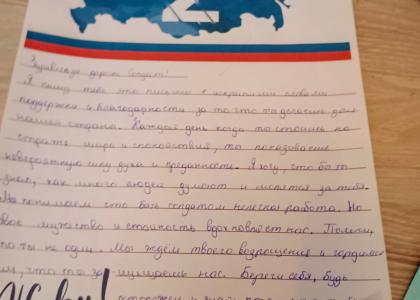 Z
Здравствуй дорогой Солдат!
Я пишу тебе это письмо с искренними словами
поддержки и благодарности за то что ты делаешь для
нашей страны. Каждый день когда ты стоишь на
страже мира и спокойствия, ты показываешь
невероятную силу духа и преданность. Я хочу, что бы ты
знал, как много людей думают и молятся за тебя.
Мы понимаем что быть солдатом нелегкая работа. Но
твое мужество и стойкость вдохновляет нас. Помни,
что ты не один. Мы ждём твоего возвращения и гордимся
тем, что ты защищаешь нас. Береги себя, будь